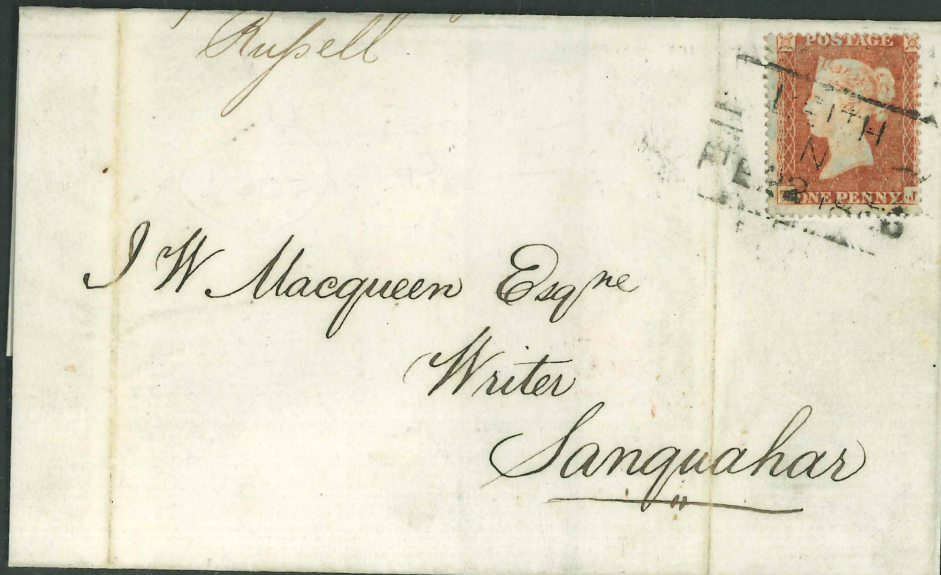 Russell
POSTAGE
LEITH
N
FE 22 1856
ONE PENNY
J W Macqueen Esqre
Writer
Sanquahar